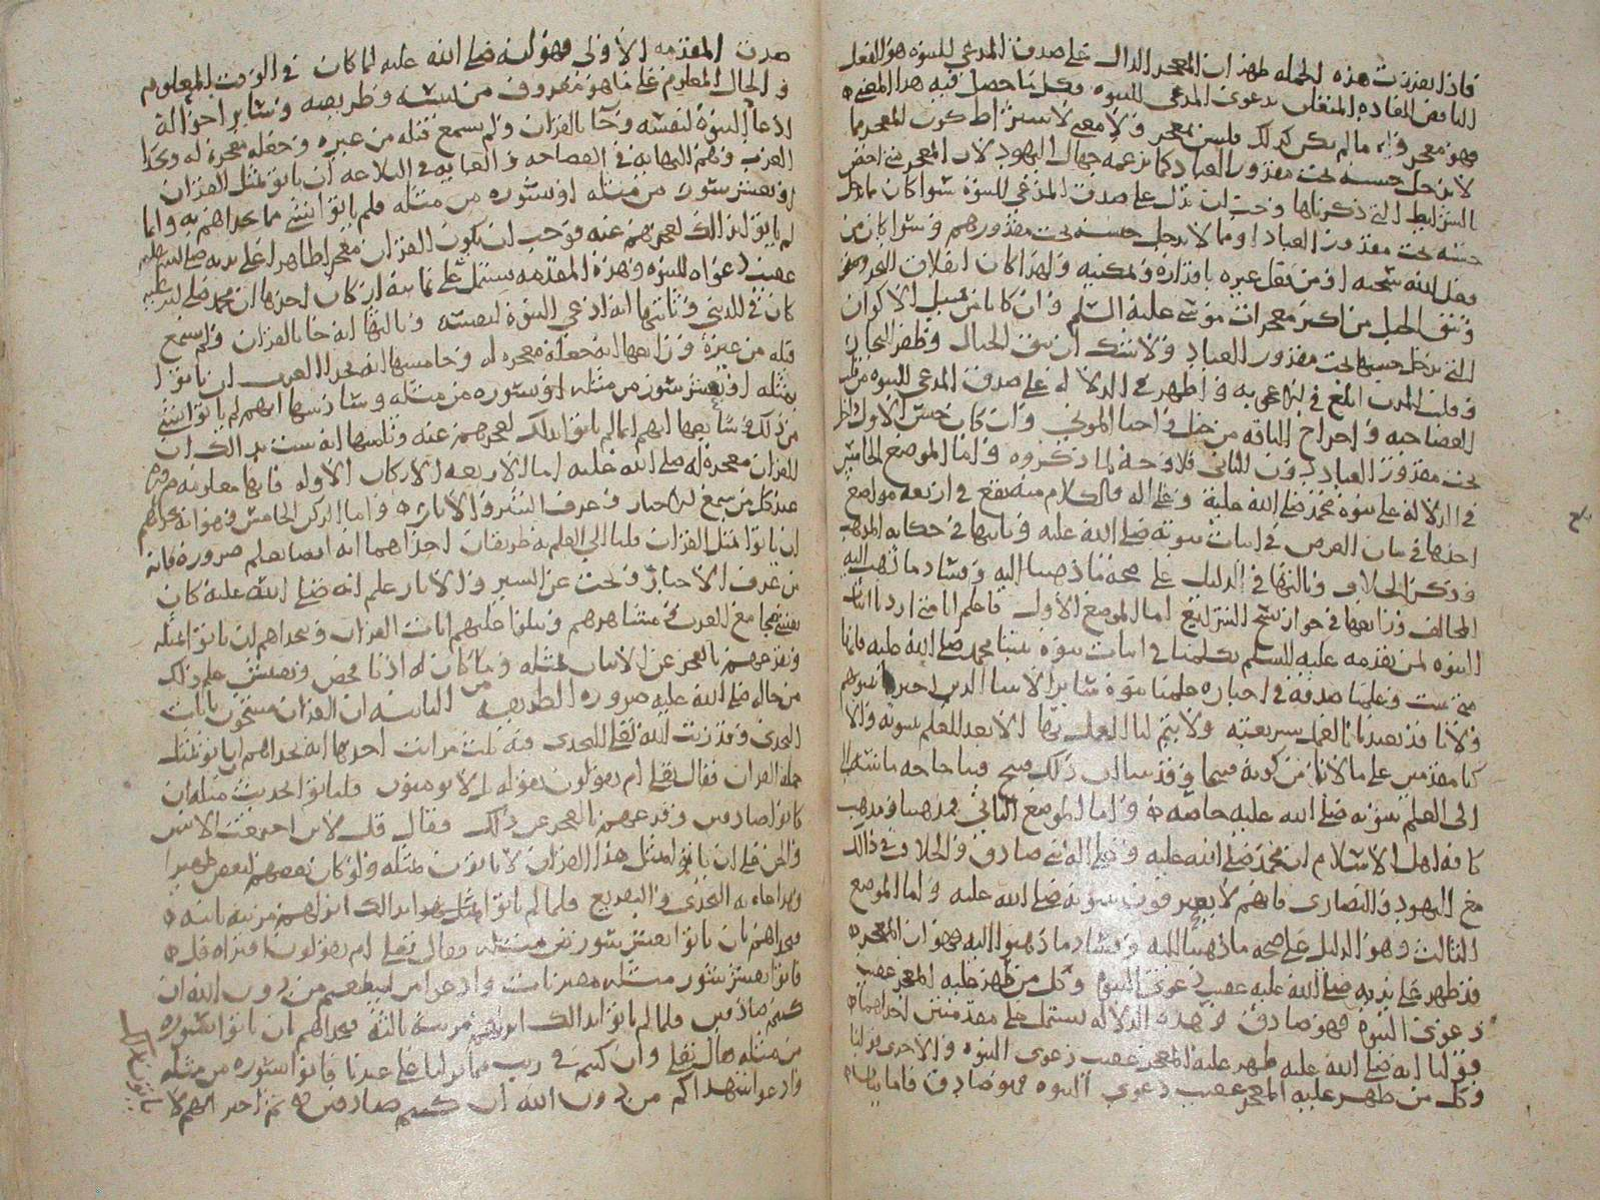 فاذا تقررت هذه الجمله ظهر ان المعجز الدال على صدق المدعي للنبوه هو الفعل
الناقض للعاده المتعلق بدعوى المدعي للنبوه وكل ما حصل فيه هذا المعنى
فهو معجز وان ما لم يكن كذلك فليس بمعجز ولا معنى لاشتراط كون المعجز مما
لا يدخل جنسه تحت مقدور العباد كما يزعمه جهال اليهود لان المعجز متى اختص
بالشرايط التي ذكرناها وجب ان يدل على صدق المدعي للنبوة سوا كان مما يدخل
جنسه تحت مقدور العباد او مما لا يدخل جنسه تحت مقدورهم وسوا كان من
فعل الله سبحنه او من فعل غيره باقداره وتمكينه ولهذا كان انفلاق البحر
ونتق الجبل من اكبر معجزات موسى عليه السلم وان كانا من قبيل الاكوان
التي يدخل جنسها تحت مقدور العباد ولا شك ان نتق الجبال وطفر البحار
وقلب المدن ابلغ في بابه واظهر في الدلاله على صدق المدعي للنبوه من
الفصاحه واخراج الناقه من جبل واحيا الموتى وان كان جنس الاول داخل
تحت مقدور العباد دون الثاني فلا وجه لما ذكروه واما الموضع الخامس
في الدلاله على نبوة محمد صلى الله عليه وعلى اله فالكلام منه يقع في اربعه مواضع
احدها في بيان الغرض في اثبات نبوته صلى الله عليه وثانيها في حكايه المذهب
وذكر الخلاف وثالثها في الدليل على صحه ما ذهبنا اليه وفساد ما ذهب اليه
المخالف ورابعها في جواز نسخ الشرايع اما الموضع الاول فاعلم انا متى اردنا اثبات
النبوه لمن تقدمه عليه السلم تكلمنا في اثبات نبوة نبينا محمد صلى الله عليه فانها
متى ثبتت وعلمنا صدقه في اخباره علمنا نبوة ساير الانبيا الذين اخبر بنبوتهم
ولانا قد تعبدنا بالعمل بشريعته ولا يتم لنا العمل بها الا بعد العلم بنبوته والا
كنا مقدمين على ما لا نامن من كونه قبيحا وقد بينا ان ذلك قبيح فبنا حاجه ماسه
الى العلم بنبوته صلى الله عليه خاصه واما الموضع الثاني فمذهبنا ومذهب
كافه اهل الاسلام ان محمد صلى الله عليه وعلى اله نبي صادق والخلاف في ذلك
مع اليهود والنصارى فانهم لا يعترفون بنبوته صلى الله عليه واما الموضع
الثالث وهو الدليل على صحه ما ذهبنا اليه وفساد ما ذهبوا اليه فهو ان المعجز
قد ظهر على يديه صلى الله عليه عقيب دعوى النبوه وكل من ظهر عليه المعجز عقيب
دعوى النبوه فهو صادق وهذه الدلاله تشتمل على مقدمتين احداهما
قولنا انه صلى الله عليه ظهر عليه المعجز عقيب دعوى النبوه والاخرى قولنا
وكل من ظهر عليه المعجز عقيب دعوى النبوه فهو صادق فاما بيان
صدق المقدمه الاولى فهو انه صلى الله عليه لما كان في الوقت المعلوم
والحال المعلوم على ما هو معروف من نسبه وطريقه وساير احواله
ادعا النبوة لنفسه وجا بالقران ولم يسمع قبله من غيره وجعله معجزة له وتحدا
العرب وهم النهايه في الفصاحه والغايه في البلاغه ان ياتوا بمثل القران
او بعشر سور من مثله او سوره من مثله فلم ياتوا بشي مما تحداهم به وانما
لم ياتوا بذلك لعجزهم عنه فوجب ان يكون القران معجزا ظاهرا على يديه صلى الله عليه
عقيب دعواه للنبوه وهذه المقدمه تشتمل على ثمانيه اركان احدها ان محمد صلى الله عليه
كان في الدنيا وثانيها انه ادعى النبوة لنفسه وثالثها انه جا بالقران ولم يسمع
قبله من غيره ورابعها انه جعله معجزه له وخامسها انه تحدا العرب ان ياتوا
بمثله او بعشر سور من مثله او سوره من مثله وسادسها انهم لم ياتوا بشي
من ذلك وسابعها انهم انما لم ياتوا بذلك لعجزهم عنه وثامنها انه ثبت بذلك ان
القران معجزة له صلى الله عليه اما الاربعه الاركان الاوله فانها معلومه ضروره
عند كل من سمع الاخبار وعرف السير والاثار واما الركن الخامس وهو انه تحداهم
ان ياتوا بمثل القران فلنا الى العلم به طريقان احداهما انه ايضا يعلم ضروره فانه
من عرف الاخبار وبحث عن السير والاثار علم انه صلى الله عليه كان
مع العرب في مشاهدهم ويتلوا عليهم ايات القران ويتحداهم ان ياتوا بمثله
ويقرعهم بالعجز عن الاتيان بمثله
من حاله صلى الله عليه ضروره الطريقه الثانيه ان القران مشحون بايات
التحدي وقد رتب الله تعلى التحدي فيه ثلث مراتب احدها انه تحداهم ان ياتوا بمثل
جمله القران فقال تعلى ام يقولون تقوله بل لا يومنون فلياتوا بحديث مثله ان
كانوا صادقين وقرعهم بالعجز عن ذلك فقال قل لان اجتمعت الانس
والجن على ان ياتوا بمثل هذا القران لا ياتون بمثله ولو كان بعضهم لبعض ظهيرا
وهذا غايه التحدي والتقريع فلما لم ياتوا بمثل بذلك انزلهم مرتبه ثانيه
فتحداهم بان ياتوا بعشر سور من مثله فقال تعلى ام يقولون افتراه قل
فاتوا بعشر سور مثله مفتريات وادعوا من استطعتم من دون الله ان
كنتم صادقين فلما لم ياتوا بذلك انزلهم مرتبه ثالثة فتحداهم ان ياتوا بسوره
من مثله فقال تعلى وان كنتم في ريب مما نزلنا على عبدنا فاتوا بسوره من مثله
وادعوا شهداكم من دون الله ان كنتم صادقين ثم اخبر انهم لا